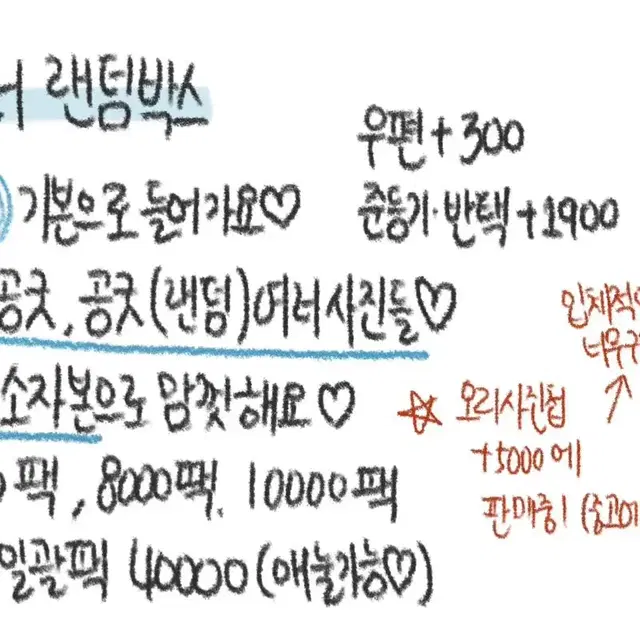 랜덤박스
우편+300
준등기·반택+1900
기본으로 들어가요♡
공굿, 공굿(랜덤)여러사진들♡
소자본으로 맘껏해요♡
☆ 오리사진첩
+5000에
판매중!
팩, 8000팩, 10000팩
일괄팩 40000(애눌가능♡)